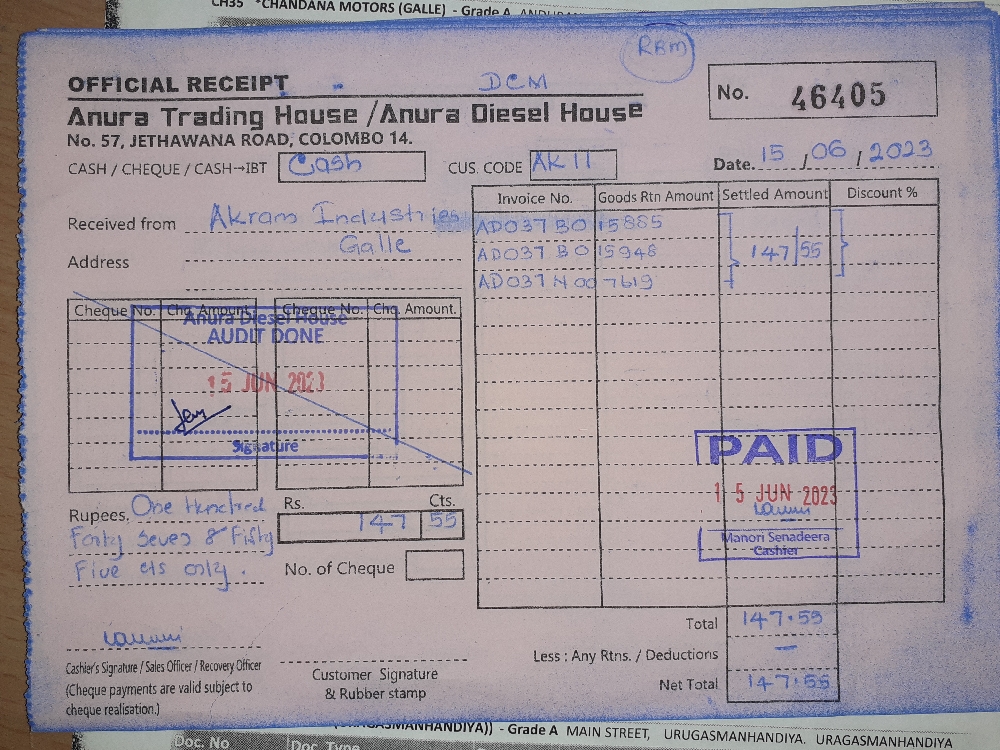 CH35 *CHANDANA MOTORS (GALLE) - Grade A
RBM
OFFICIAL RECEIPT
DCM
No. 46405
Anura Trading House /Anura Diesel House
No. 57, JETHAWANA ROAD, COLOMBO 14.
CASH / CHEQUE / CASH→IBT Cash
CUS. CODE AK 11
Date. 15 / 06 / 2023
Invoice No. Goods Rtn Amount Settled Amount Discount %
Received from Akram Industries
Galle
Address
AD037 BO 15885
AD037 BO 15948 147 55
AD037 N 00 7619
Cheque No. Chq. Amount. Cheque No. Chq. Amount.
Anura Diesel House
AUDIT DONE
15 JUN 2023
Signature
PAID
15 JUN 2023
Manori Senadeera
Cashier
Rupees. One Hundred
Forty Seven & Fifty
Five cts only.
Rs. Cts.
147 55
No. of Cheque
Total 147.55
Less : Any Rtns. / Deductions —
Net Total 147.55
Cashier's Signature / Sales Officer / Recovery Officer
(Cheque payments are valid subject to
cheque realisation.)
Customer Signature
& Rubber stamp
(URAGASMANHANDIYA)) - Grade A MAIN STREET, URUGASMANHANDIYA. URAGASMANHANDIYA
Doc. No Doc. Type